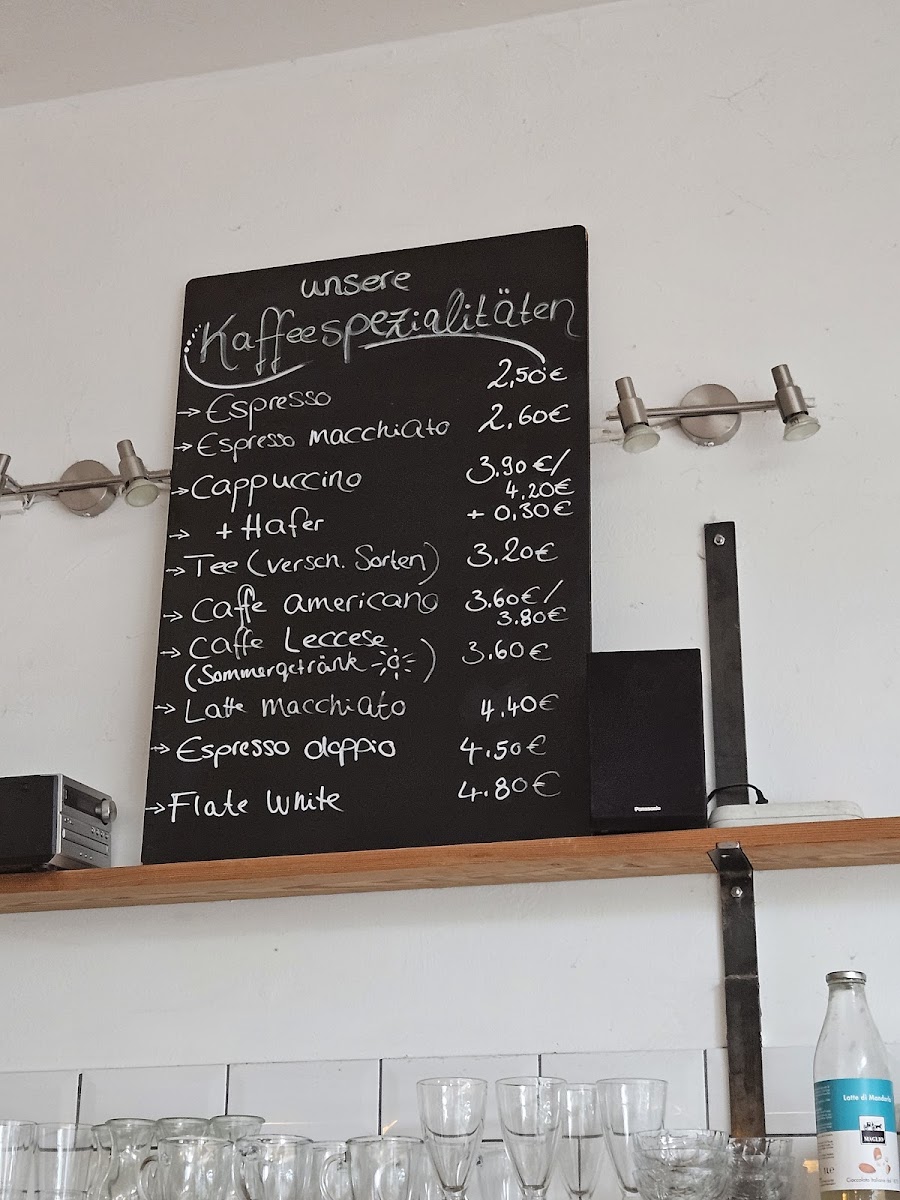 unsere
Kaffeespezialitäten
→ Espresso 2,50€
→ Espresso macchiato 2.60€
→ Cappuccino 3.90€/
4.20€
→ + Hafer + 0,30€
→ Tee (versch. Sorten) 3.20€
→ Caffe americano 3.60€/
3.80€
→ Caffe Leccese 3.60€
(Sommergetränk )
→ Latte macchiato 4.40€
→ Espresso doppio 4.50€
→ Flate White 4.80€
Panasonic
Latte di Mandorla
MAGLIO
1L e